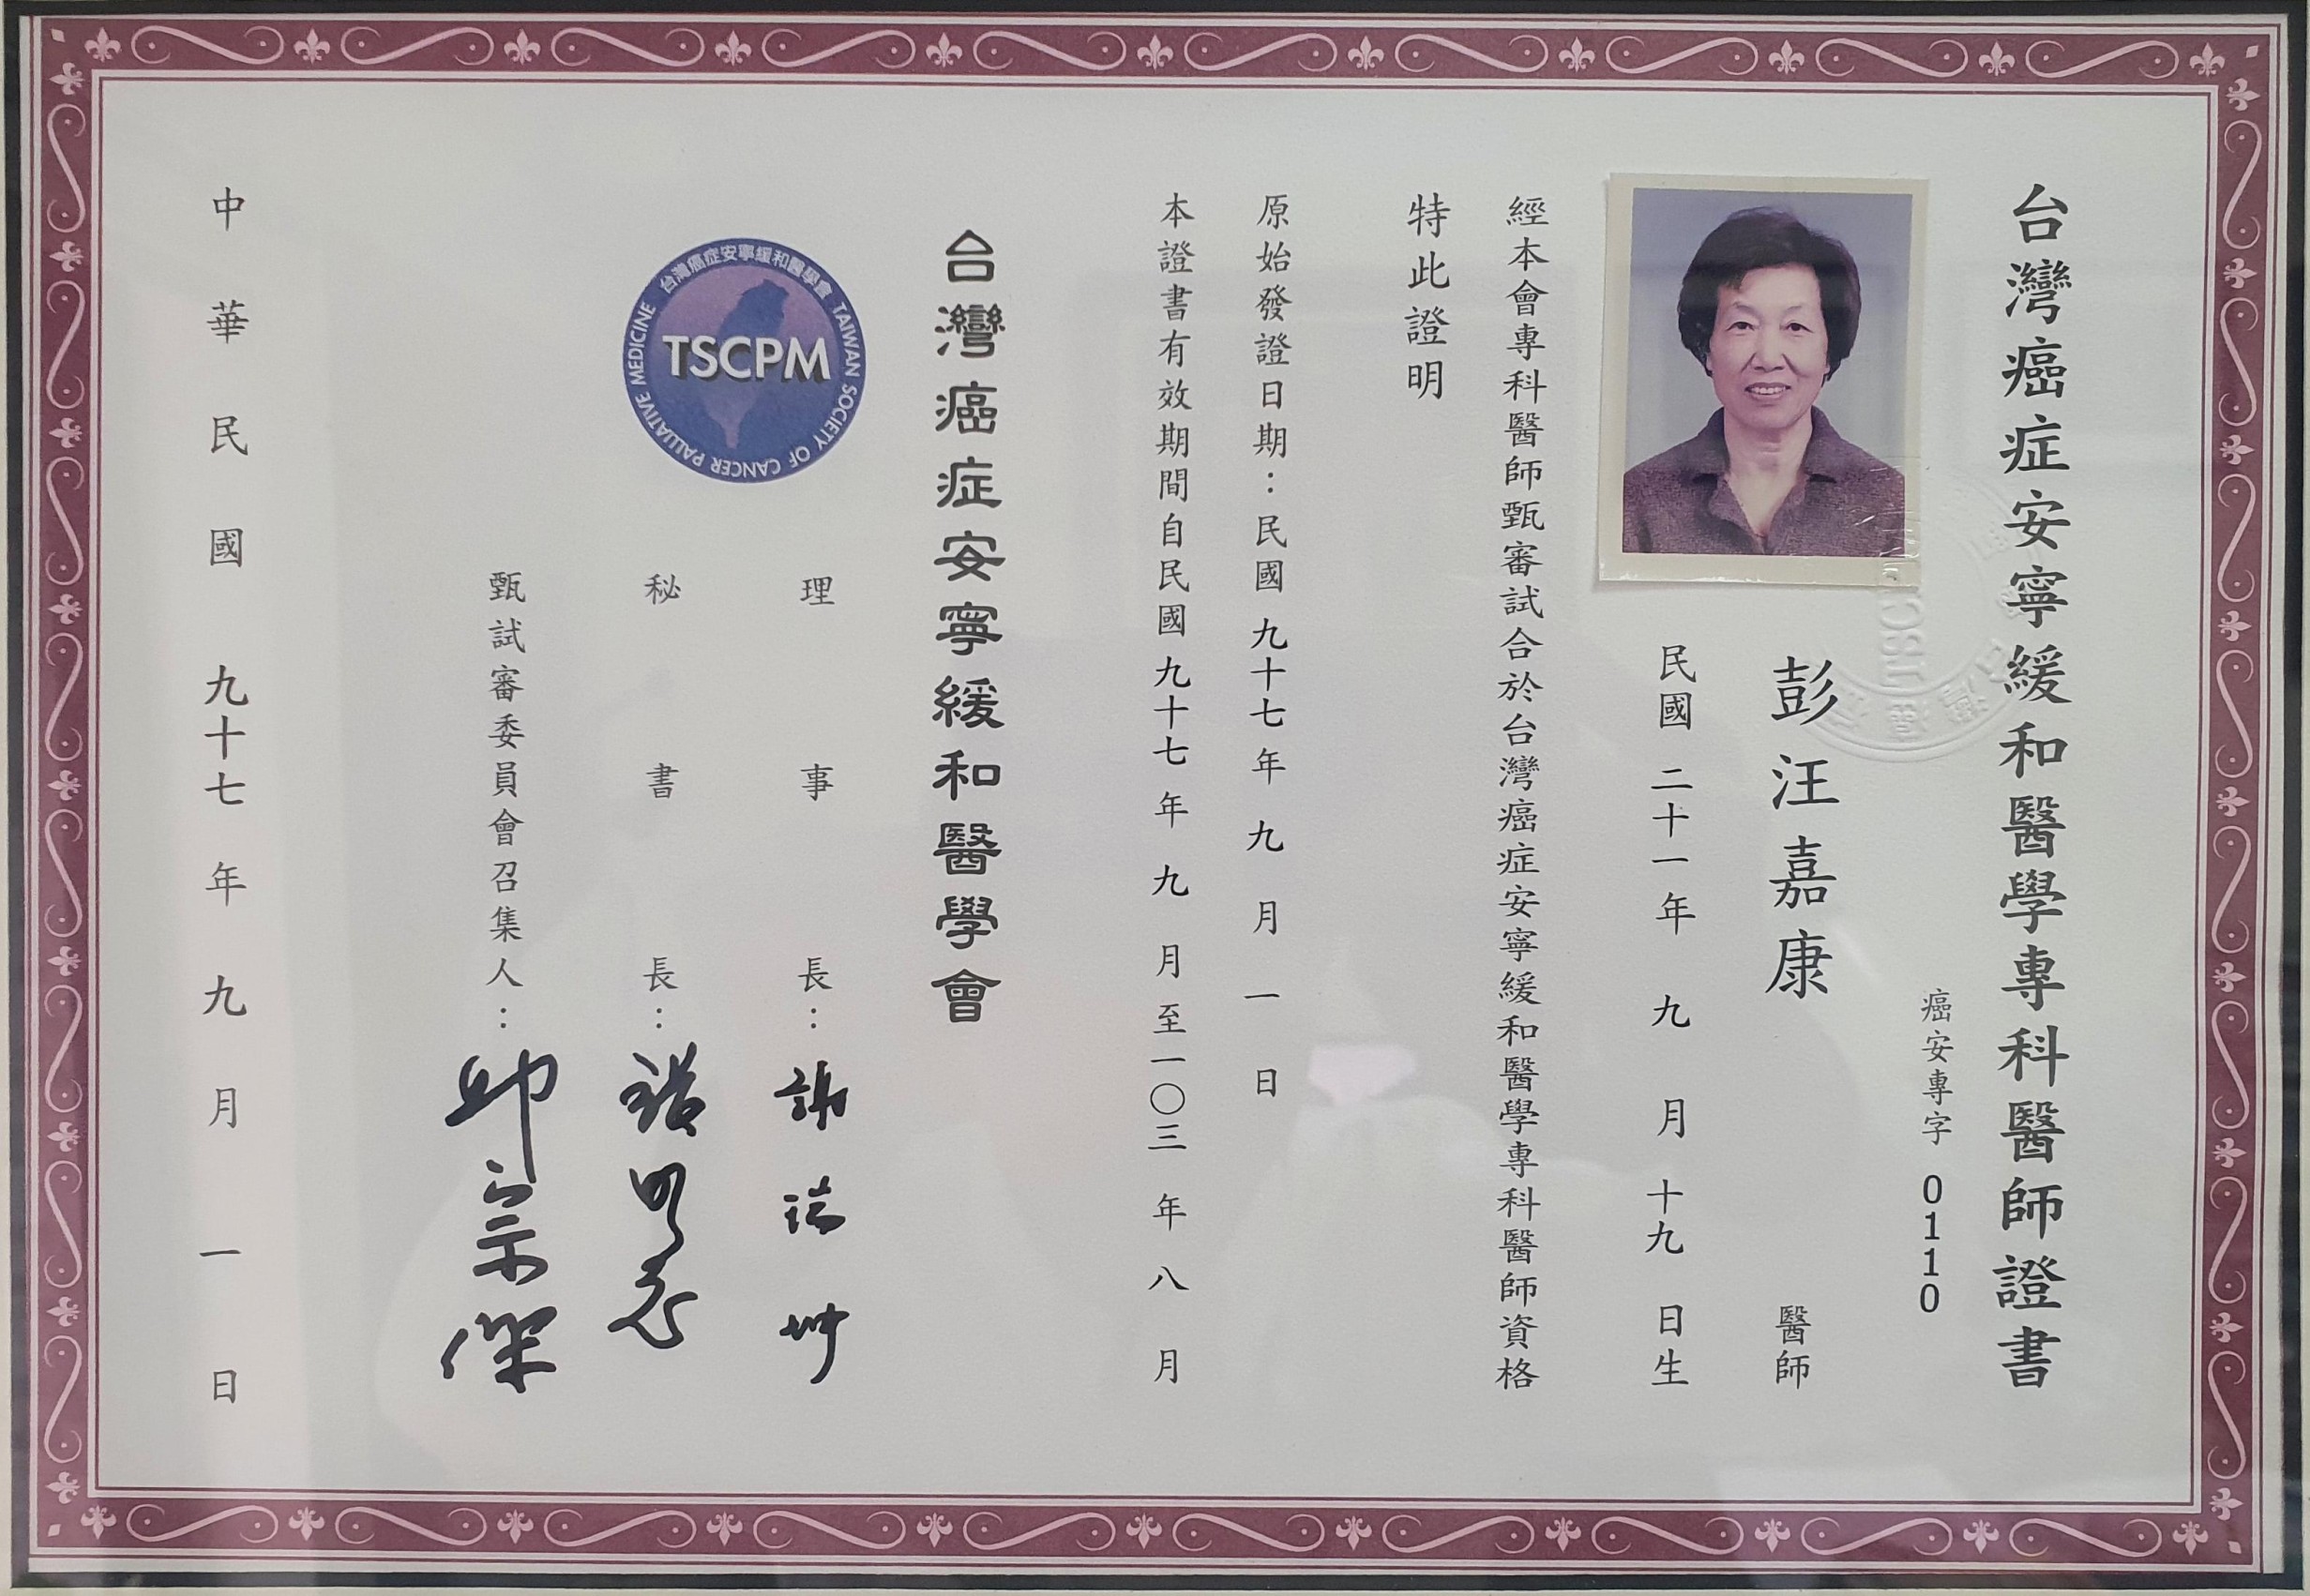 台灣癌症安寧緩和醫學專科醫師證書
癌安專字 0110
彭汪嘉康 醫師
民國 二十一年 九 月 十九 日生
經本會專科醫師甄審試合於台灣癌症安寧緩和醫學專科醫師資格
特此證明
原始發證日期：民國 九十七年 九 月 一 日
本證書有效期間自民國 九十七 年 九 月至一〇三 年 八 月
台灣癌症安寧緩和醫學會
台灣癌症安寧緩和醫學會 TAIWAN SOCIETY OF CANCER PALLIATIVE MEDICINE
TSCPM
理事長：謝瑞坤
秘書長：
甄試審委員會召集人：邱宗傑
中華民國 九十七 年 九 月 一 日